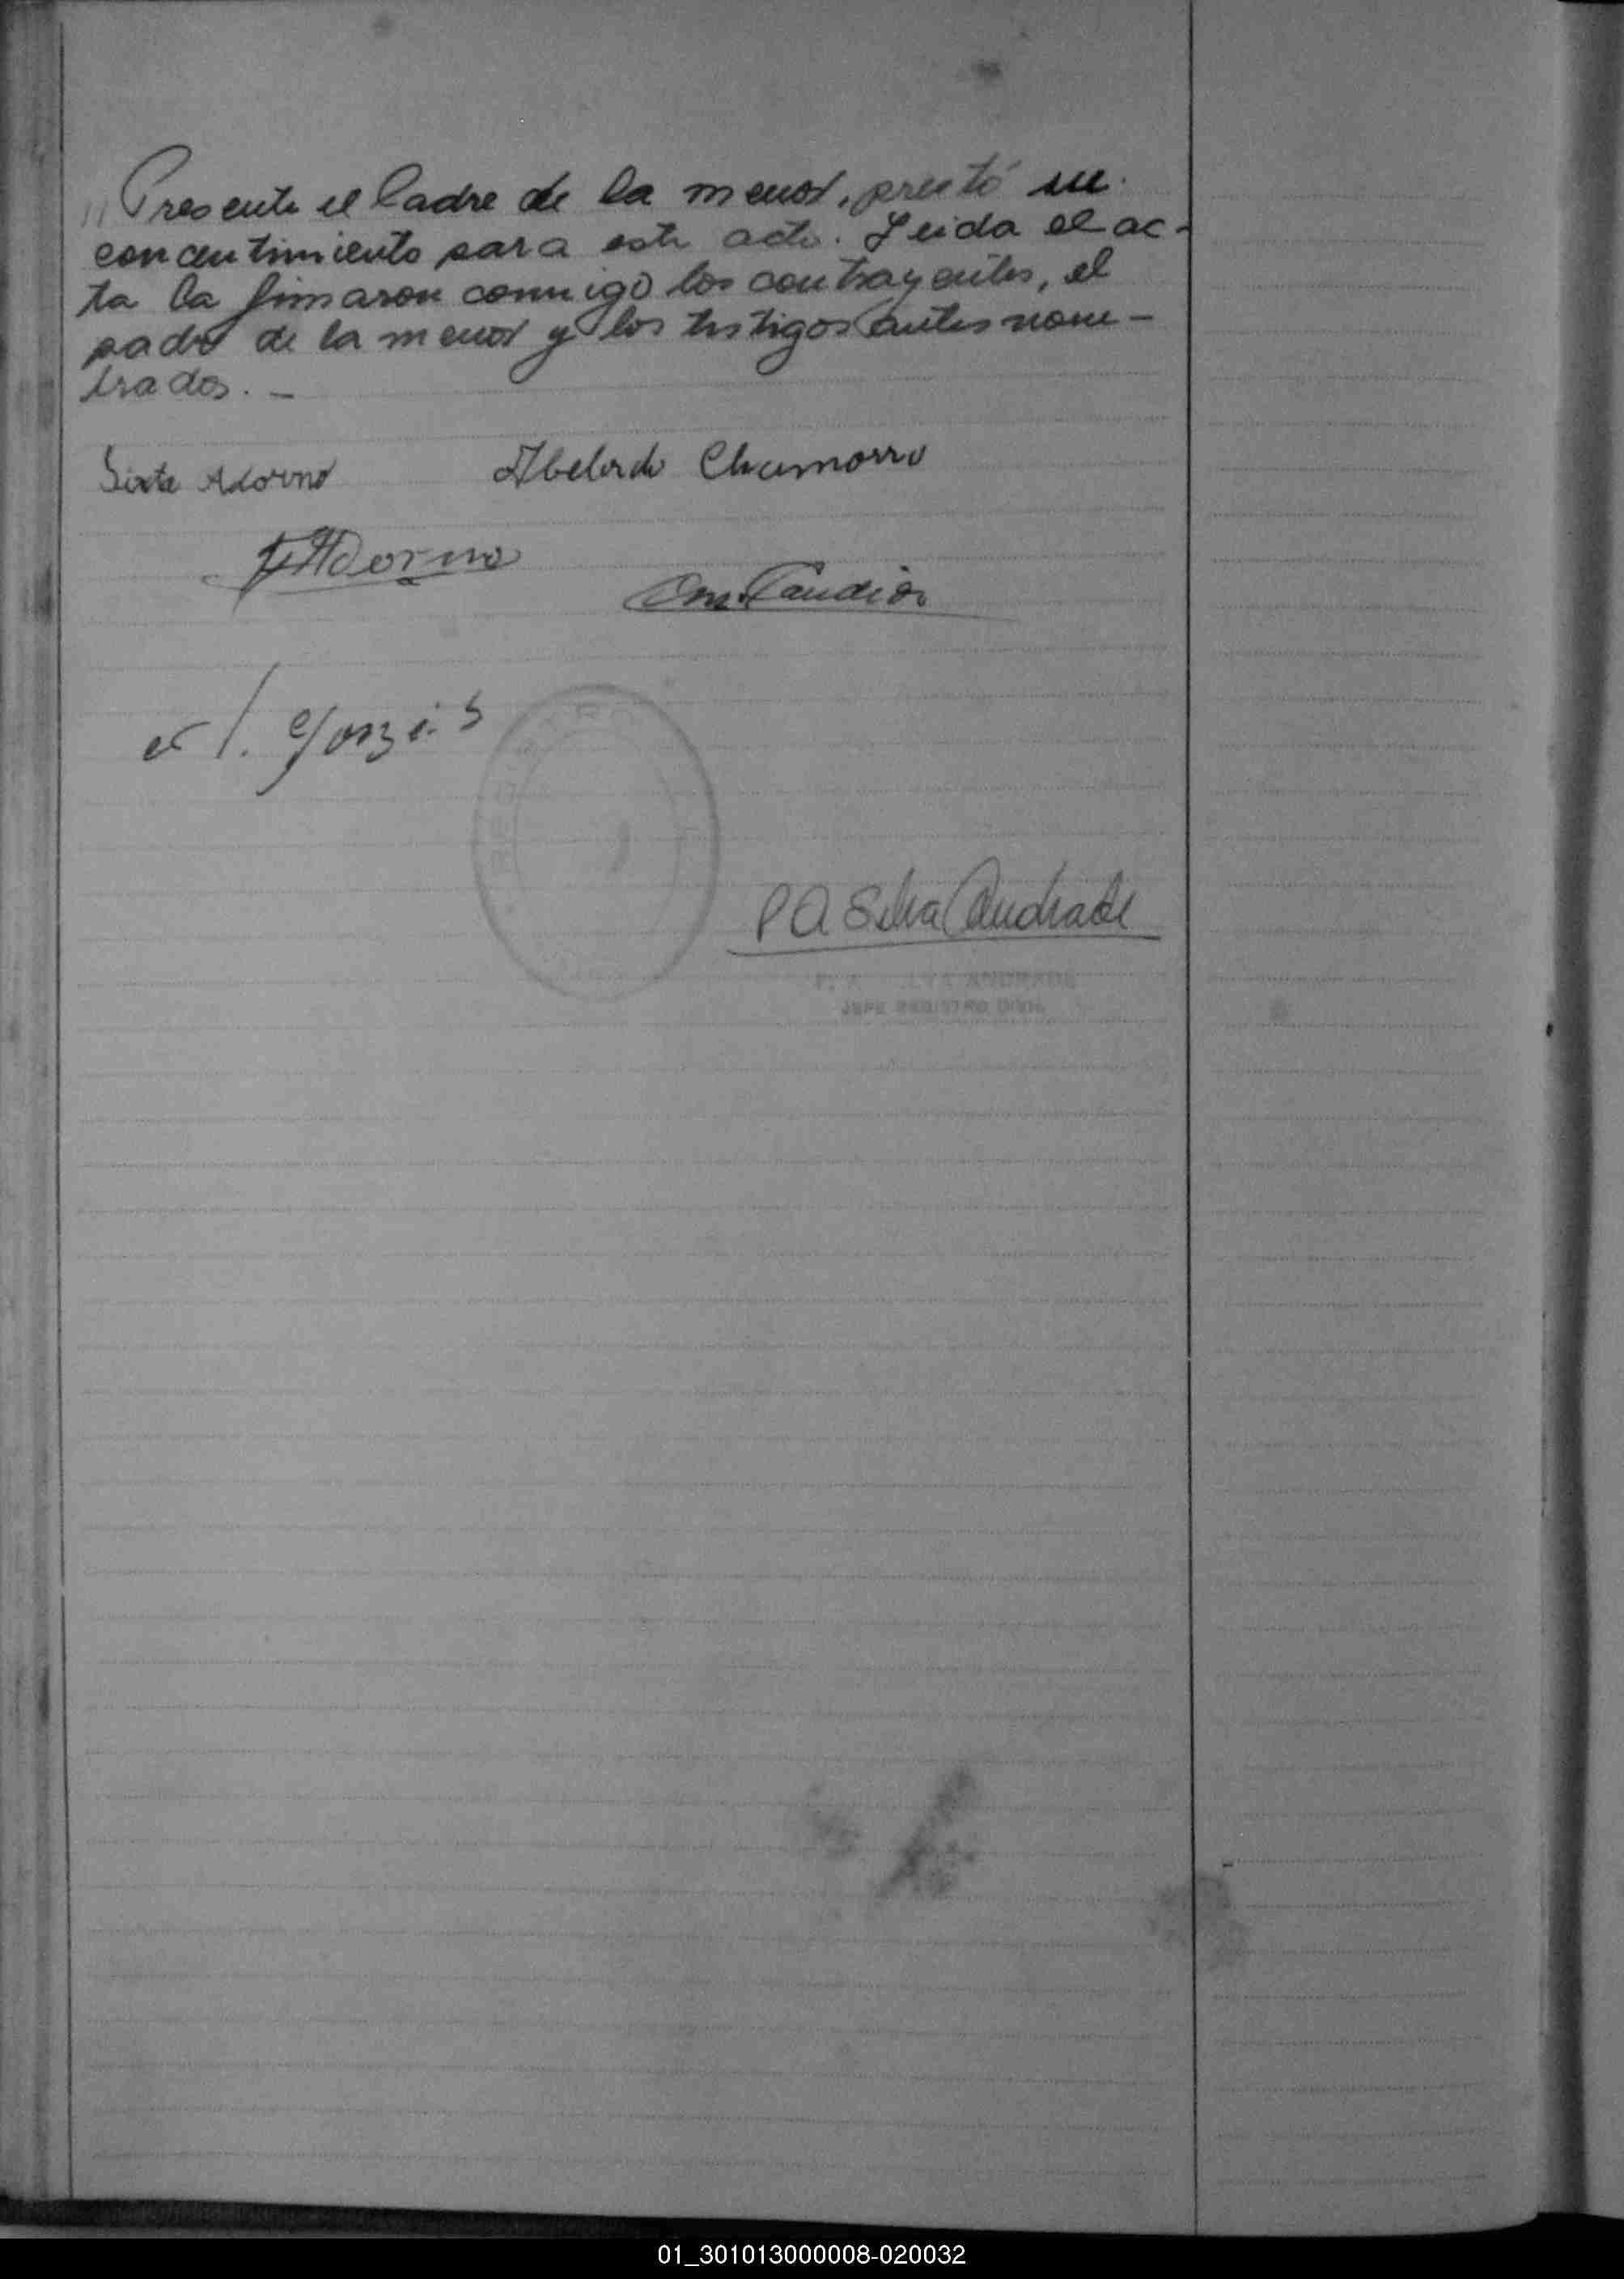 // Presente el Padre de la menor, prestó su
concentimiento para este acto. Leida el ac-
ta la firmaron conmigo los contrayentes, el
padre de la menor y los testigos antes nom-
brados. -
Sixta Adorno Abelardo Chamorro
Adorno
P A Silva Andrade
ANDRADE
JEFE REGISTRO CIVIL
01_301013000008-020032